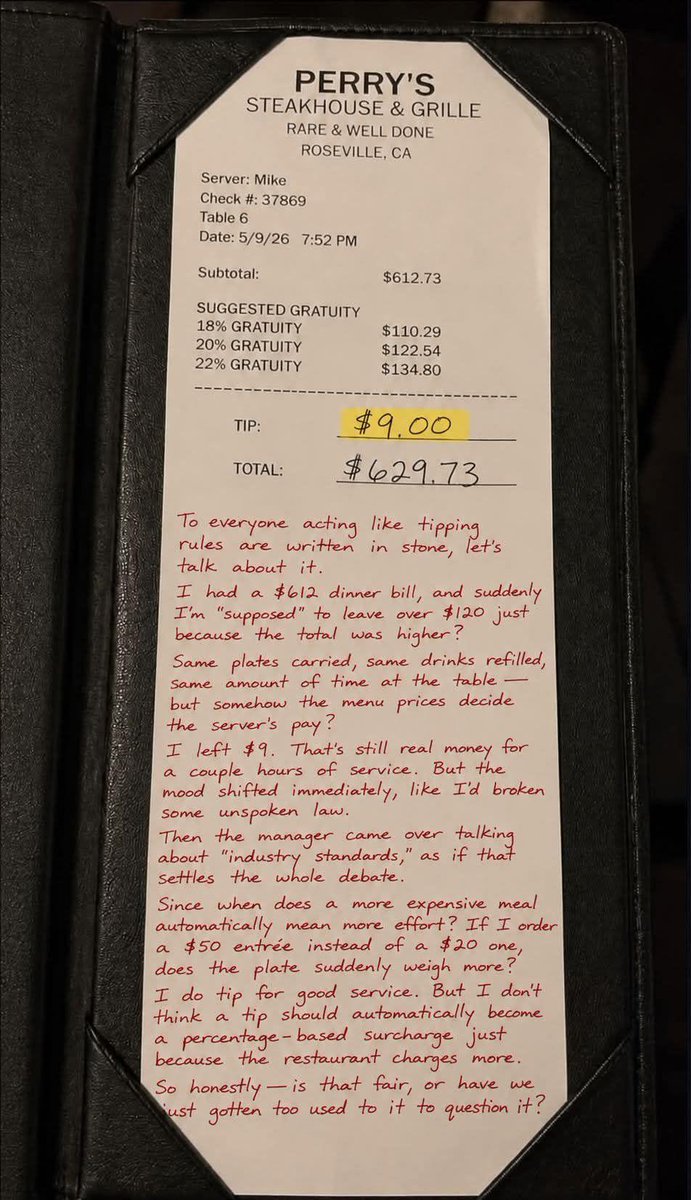 PERRY'S
STEAKHOUSE & GRILLE
RARE & WELL DONE
ROSEVILLE, CA
Server: Mike
Check #: 37869
Table 6
Date: 5/9/26 7:52 PM
Subtotal: $612.73
SUGGESTED GRATUITY
18% GRATUITY $110.29
20% GRATUITY $122.54
22% GRATUITY $134.80
TIP: $9.00
TOTAL: $629.73
To everyone acting like tipping
rules are written in stone, let's
talk about it.
I had a $612 dinner bill, and suddenly
I'm "supposed" to leave over $120 just
because the total was higher?
Same plates carried, same drinks refilled,
same amount of time at the table —
but somehow the menu prices decide
the server's pay?
I left $9. That's still real money for
a couple hours of service. But the
mood shifted immediately, like I'd broken
some unspoken law.
Then the manager came over talking
about "industry standards," as if that
settles the whole debate.
Since when does a more expensive meal
automatically mean more effort? If I order
a $50 entrée instead of a $20 one,
does the plate suddenly weigh more?
I do tip for good service. But I don't
think a tip should automatically become
a percentage-based surcharge just
because the restaurant charges more.
So honestly — is that fair, or have we
just gotten too used to it to question it?